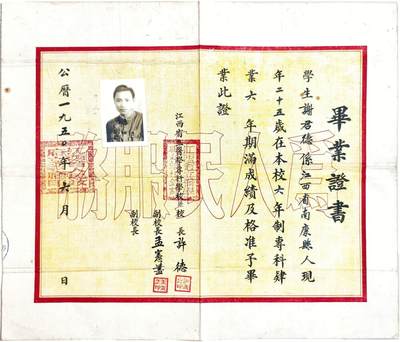 畢業證書
學生謝君 係江西省南康縣人現
年二十五歲在本校六年制專科肄
業六 年期滿成績及格准予畢
業此證
江西省 專科學校 校長許德
副校長孟憲藎
副校長
公曆一九五〇年六月 日
為人民服務